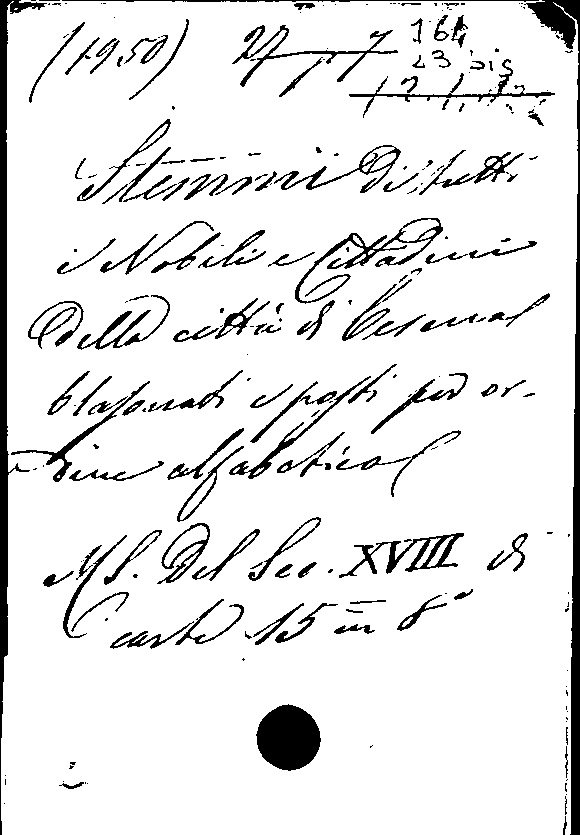 (1950) 164
23 bis
Stemmi di tutti
i Nobili e Cittadini
della città di Cesena
blasonati e posti per or-
dine alfabetico
MS. Del Sec. XVIII di
Carte 15 in 8°